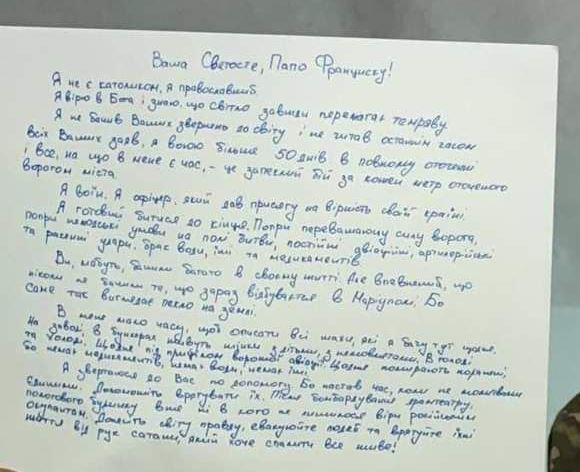 Ваша Светосте, Папо Франциску!
Я не є католиком, я православний.
Я вірю в Бога і знаю, що світло завжди перемагає темряву.
Я не бачив Ваших звернень до світу і не читав останнім часом
всіх Ваших заяв, я воюю більше 50 днів в повному оточенні
і все, на що в мене є час, - це запеклий бій за кожен метр оточеного
ворогом міста
Я воїн. Я офіцер, який дав присягу на вірність своїй країні.
Я готовий битися до кінця. Попри переважаючу силу ворога,
попри нелюдські умови на полі битви, постійні авіаційні, артилерійські
та ракетні удари, брак води, їжі та медикаментів.
Ви, мабуть, бачили багато в своєму житті. Але впевнений, що
ніколи не бачили те, що зараз відбувається в Маріуполі. Бо
саме так виглядає пекло на землі.
В мене мало часу, щоб описати всі жахи, які я бачу тут щодня.
На заводі в бункерах живуть жінки з дітьми, з немовлятами. В голоді
та холоді. Щодня під прицілом ворожої авіації. Щодня помирають поранені,
бо немає медикаментів, немає води, немає їжі.
Я звертаюся до Вас по допомогу. Бо настав час, коли не молитвами
єдиними. Допоможіть врятувати їх. Після бомбардування драмтеатру,
пологового будинку вже ні в кого не лишилося віри російським
окупантам. Донесіть світу правду, евакуюйте людей та врятуйте їхні
життя від рук сатани, який хоче спалити все живе!